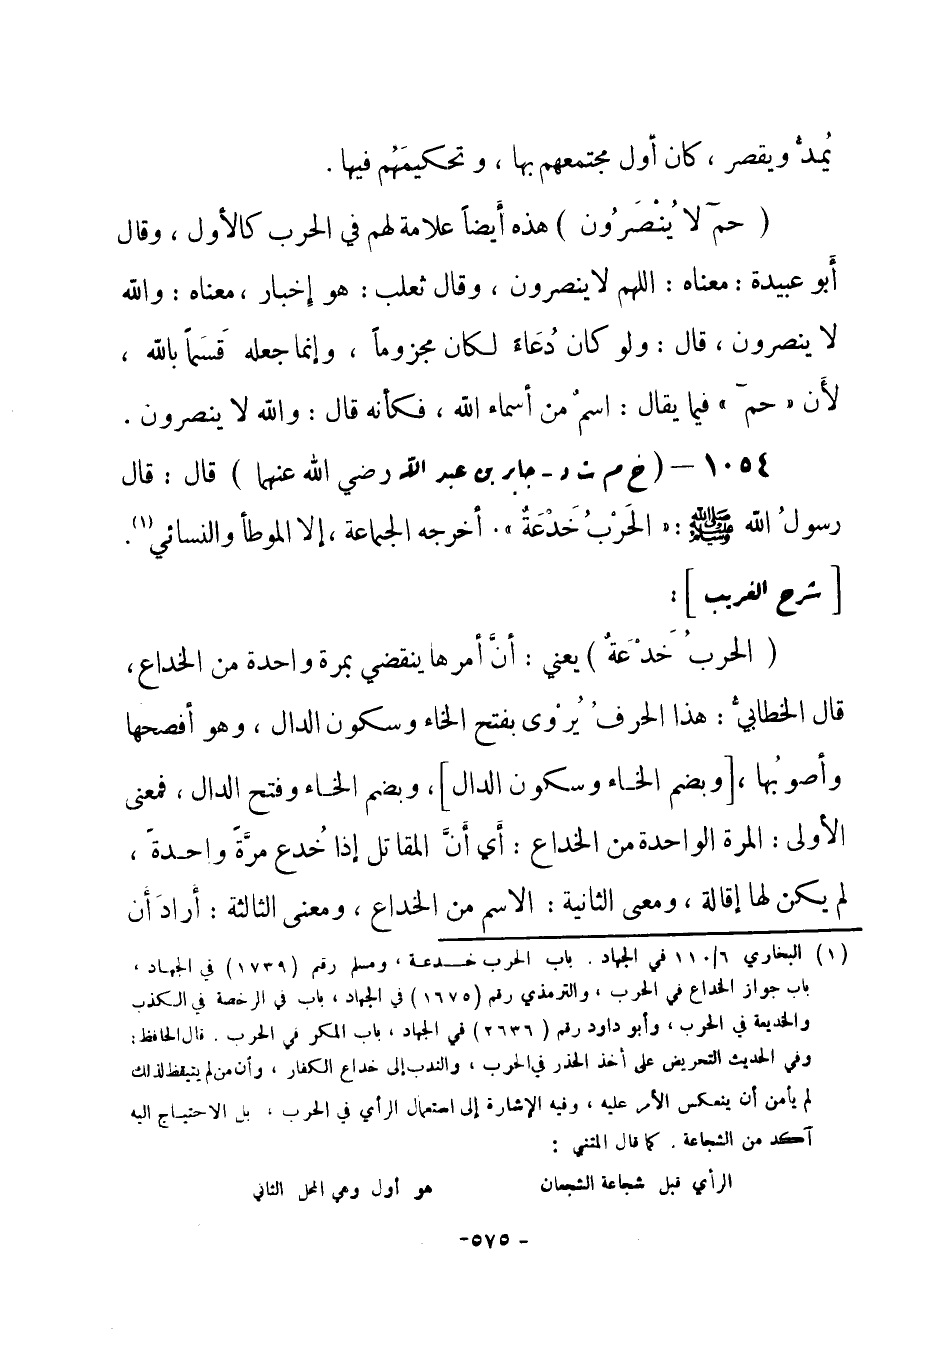 يُمدُّ ويقصر ، كان أول مجتمعهم بها ، و تحكيمَهُم فيها .
( حمۤ لا يُنْصَرُون ) هذه أيضاً علامة لهم في الحرب كالأول ، وقال
أبو عبيدة : معناه : اللهم لا ينصرون ، وقال ثعلب : هو إخبار ، معناه : والله
لا ينصرون ، قال : ولو كان دُعَاءً لكان مجزوماً ، وإنما جعله قَسَماً بالله ،
لأن « حمۤ » فيما يقال : اسمٌ من أسماء الله ، فكأنه قال : والله لا ينصرون .
١٠٥٤ – ( خ م ت د - جابر بن عبد الله رضي الله عنهما ) قال : قال
رسولُ الله ﷺ : « الحَرْبُ خَدْعَةٌ » . أخرجه الجماعة ، إلا الموطأ والنسائي (١) .
[ شرح الغريب ] :
( الحربُ خَدْعَةٌ ) يعني : أنَّ أمرها ينقضي بمرة واحدة من الخداع ،
قال الخطابيُّ : هذا الحرفُ يُرْوى بفتح الخاء وسكون الدال ، وهو أفصحها
وأصوبُها ، [ وبضم الخاء وسكون الدال ] ، وبضم الخاء وفتح الدال ، فمعنى
الأولى : المرة الواحدة من الخداع : أي أنَّ المقاتل إذا خُدع مرَّةً واحدةً ،
لم يكن لها إقالة ، ومعنى الثانية : الاسم من الخداع ، ومعنى الثالثة : أرادَ أن
(١) البخاري ٦/١١٠ في الجهاد . باب الحرب خدعة ، ومسلم رقم (١٧٣٩) في الجهاد ،
باب جواز الخداع في الحرب ، والترمذي رقم (١٦٧٥) في الجهاد ، باب في الرخصة في الكذب
والخديعة في الحرب ، وأبو داود رقم (٢٦٣٦) في الجهاد ، باب المكر في الحرب . قال الحافظ :
وفي الحديث التحريض على أخذ الحذر في الحرب ، والندب إلى خداع الكفار ، وأن من لم يتيقظ لذلك
لم يأمن أن ينعكس الأمر عليه ، وفيه الإشارة إلى استعمال الرأي في الحرب ، بل الاحتياج اليه
آكد من الشجاعة . كما قال المتنبي :
الرأي قبل شجاعة الشجعان هو أول وهي المحل الثاني
- ٥٧٥ -